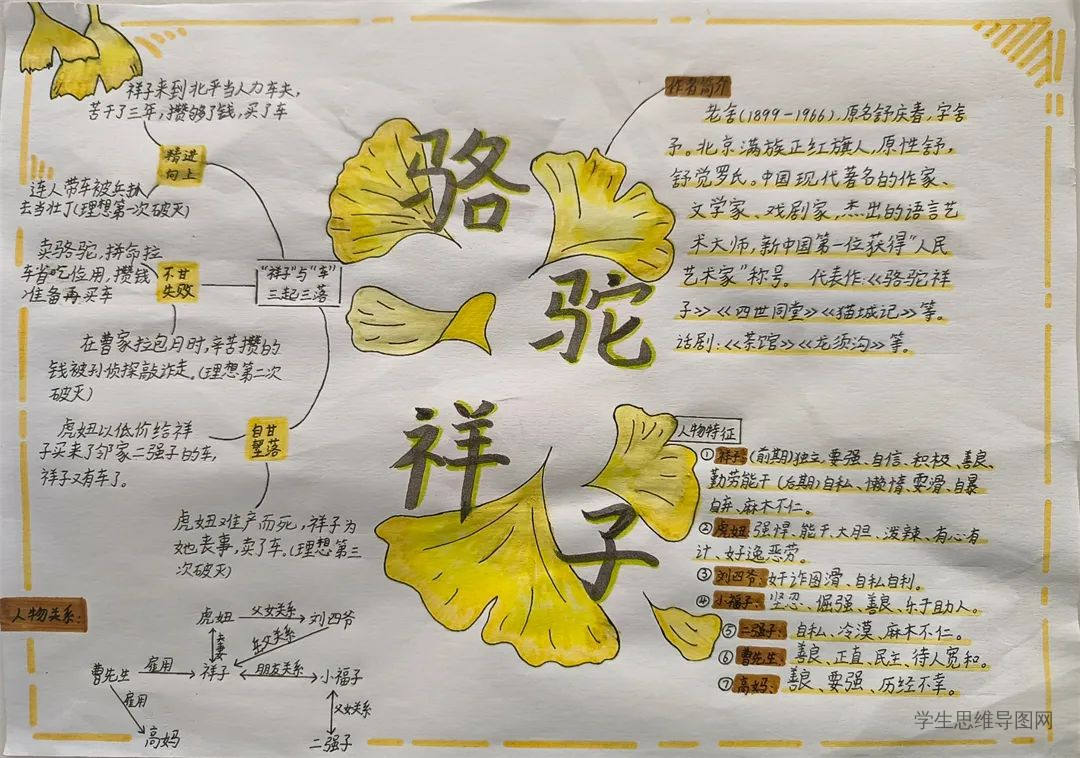 骆
驼
祥
子
祥子来到北平当人力车夫,
苦干了三年,攒够了钱,买了车
精进
向上
连人带车被兵抓
去当壮丁(理想第一次破灭)
卖骆驼,拼命拉
车省吃俭用,攒钱
准备再买车
不甘
失败
"祥子"与"车"
三起三落
在曹家拉包月时,辛苦攒的
钱被孙侦探敲诈走。(理想第二次
破灭)
虎妞以低价给祥
子买来了邻家二强子的车,
祥子又有车了。
自甘
堕落
虎妞难产而死,祥子为
她丧事,卖了车。(理想第三
次破灭)
人物关系:
虎妞 父女关系 刘四爷
夫妻
曹先生 雇用 祥子 朋友关系 小福子
雇用
父女关系
高妈
二强子
作者简介
老舍(1899-1966),原名舒庆春,字舍
予。北京满族正红旗人,原性舒,
舒觉罗氏。中国现代著名的作家、
文学家、戏剧家,杰出的语言艺
术大师,新中国第一位获得"人民
艺术家"称号。代表作:<<骆驼祥
子>><<四世同堂>><<猫城记>>等。
话剧:<<茶馆>><<龙须沟>>等。
人物特征
①祥子:(前期)独立、要强、自信、积极、善良、
勤劳能干(后期)自私、懒惰、耍滑、自暴
自弃、麻木不仁。
②虎妞 强悍、能干、大胆、泼辣、有心有
计、好逸恶劳。
③刘四爷:奸诈圆滑、自私自利。
④小福子:坚忍、倔强、善良、乐于助人。
⑤二强子:自私、冷漠、麻木不仁。
⑥曹先生:善良、正直、民主、待人宽和。
⑦高妈:善良、要强、历经不幸。
学生思维导图网